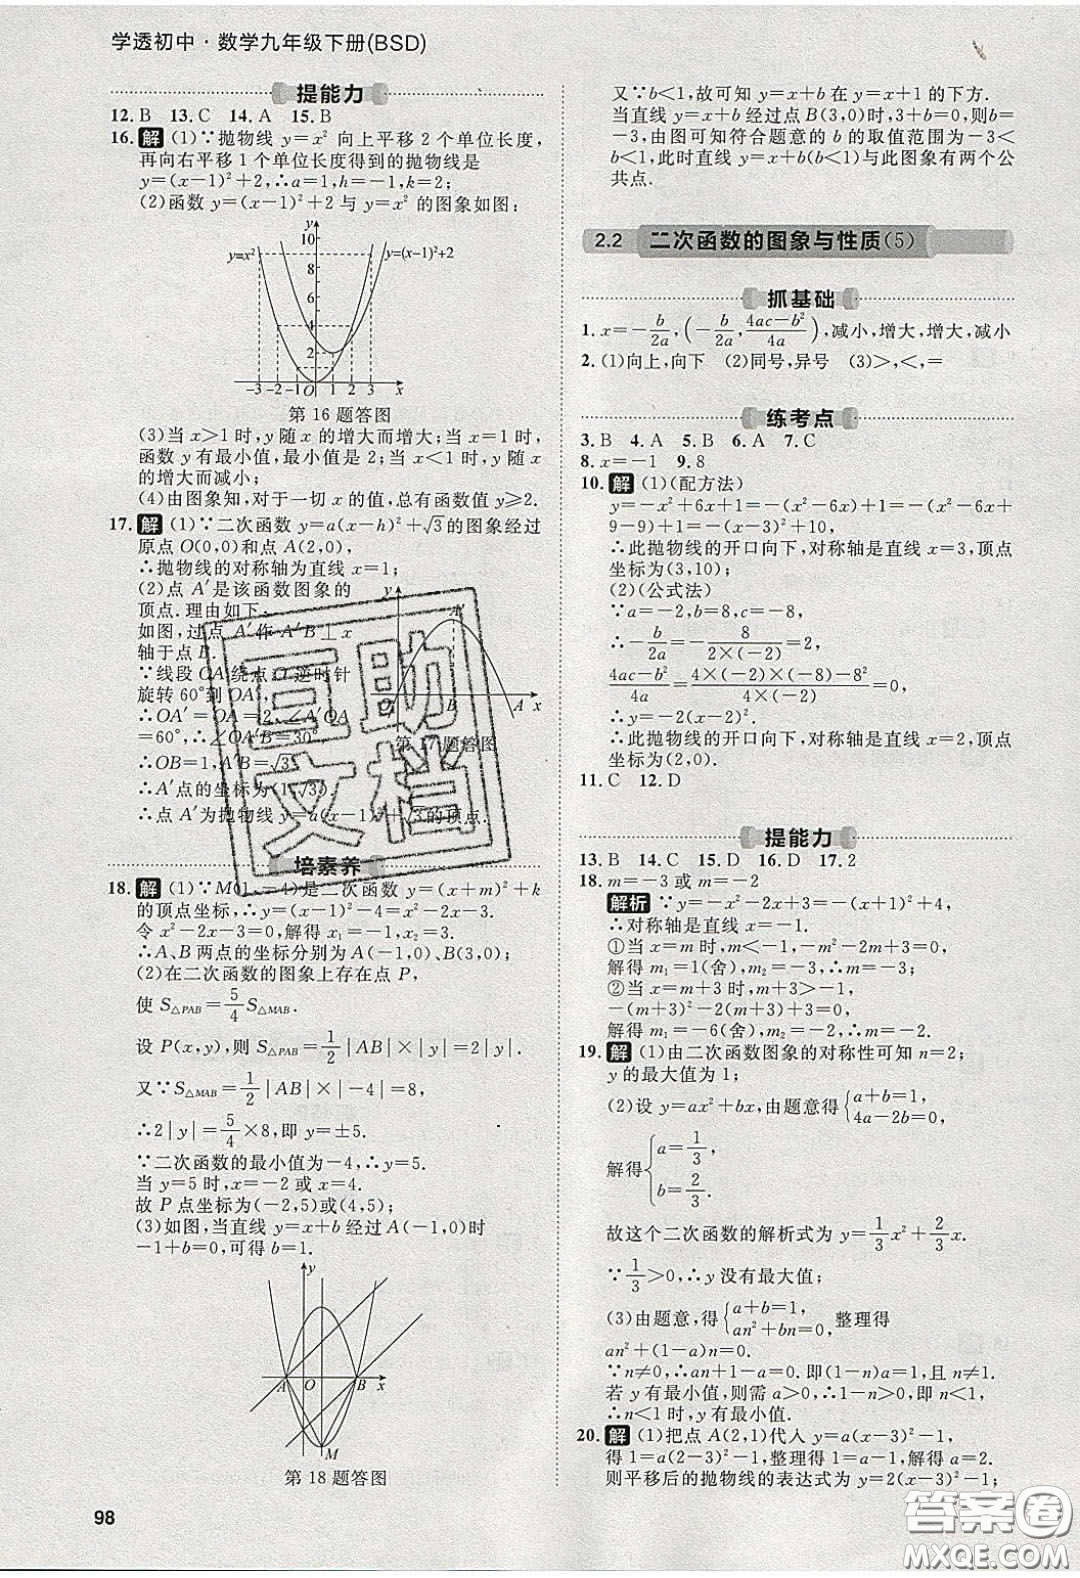 学透初中·数学九年级下册(BSD)
提能力
12. B　13. C　14. A　15. B
16. 解 (1)∵抛物线 y=x² 向上平移 2 个单位长度,
再向右平移 1 个单位长度得到的抛物线是
y=(x-1)²+2,∴a=1,h=-1,k=2;
(2)函数 y=(x-1)²+2 与 y=x² 的图象如图:
y
10
8
y=x²
y=(x-1)²+2
6
4
2
-3 -2 -1 O 1 2 3 x
第 16 题答图
(3)当 x>1 时,y 随 x 的增大而增大;当 x=1 时,
函数 y 有最小值,最小值是 2;当 x<1 时,y 随 x
的增大而减小;
(4)由图象知,对于一切 x 的值,总有函数值 y≥2.
17. 解 (1)∵二次函数 y=a(x-h)²+√3的图象经过
原点 O(0,0)和点 A(2,0),
∴抛物线的对称轴为直线 x=1;
(2)点 A′是该函数图象的
顶点.理由如下:
如图,过点 A′作 A′B⊥x
轴于点 B.
∵线段 OA 绕点 O 逆时针
旋转 60°到 OA′,
∴OA′=OA=2,∠A′OA
=60°,∴∠OA′B=30°.
∴OB=1,A′B=√3.
∴A′点的坐标为(1,√3).
∴点 A′为抛物线 y=a(x-1)²+√3的顶点.
y
A′
O B A x
第 17 题答图
互助
文档
培素养
18. 解 (1)∵M(1,-4)是二次函数 y=(x+m)²+k
的顶点坐标,∴y=(x-1)²-4=x²-2x-3.
令 x²-2x-3=0,解得 x₁=-1,x₂=3.
∴A、B 两点的坐标分别为 A(-1,0)、B(3,0);
(2)在二次函数的图象上存在点 P,
使 S△PAB=5/4 S△MAB.
设 P(x,y),则 S△PAB=1/2|AB|×|y|=2|y|.
又∵S△MAB=1/2|AB|×|-4|=8,
∴2|y|=5/4×8,即 y=±5.
∵二次函数的最小值为-4,∴y=5.
当 y=5 时,x=-2 或 x=4.
故 P 点坐标为(-2,5)或(4,5);
(3)如图,当直线 y=x+b 经过 A(-1,0)时
-1+b=0,可得 b=1.
y
A O B x
M
第 18 题答图
98
又∵b<1,故可知 y=x+b 在 y=x+1 的下方.
当直线 y=x+b 经过点 B(3,0)时,3+b=0,则b=
-3,由图可知符合题意的 b 的取值范围为-3<
b<1,此时直线 y=x+b(b<1)与此图象有两个公
共点.
2.2　二次函数的图象与性质(5)
抓基础
1. x=-b/2a,(-b/2a,(4ac-b²)/4a),减小,增大,增大,减小
2. (1)向上,向下　(2)同号,异号　(3)>,<,=
练考点
3. B　4. A　5. B　6. A　7. C
8. x=-1　9. 8
10. 解 (1)(配方法)
y=-x²+6x+1=-(x²-6x)+1=-(x²-6x+
9-9)+1=-(x-3)²+10,
∴此抛物线的开口向下,对称轴是直线 x=3,顶点
坐标为(3,10);
(2)(公式法)
∵a=-2,b=8,c=-8,
∴-b/2a=-8/(2×(-2))=2,
(4ac-b²)/4a=(4×(-2)×(-8)-8²)/(4×(-2))=0,
∴y=-2(x-2)².
∴此抛物线的开口向下,对称轴是直线 x=2,顶点
坐标为(2,0).
11. C　12. D
提能力
13. B　14. C　15. D　16. D　17. 2
18. m=-3 或 m=-2
解析 ∵y=-x²-2x+3=-(x+1)²+4,
∴对称轴是直线 x=-1.
①当 x=m 时,m<-1,-m²-2m+3=0,
解得 m₁=1(舍),m₂=-3,∴m=-3;
②当 x=m+3 时,m+3>-1,
-(m+3)²-2(m+3)+3=0,
解得 m₁=-6(舍),m₂=-2,∴m=-2.
19. 解 (1)由二次函数图象的对称性可知 n=2;
y 的最大值为 1;
(2)设 y=ax²+bx,由题意得{a+b=1,
4a-2b=0,
解得{a=1/3,
b=2/3.
故这个二次函数的解析式为 y=1/3x²+2/3x.
∵1/3>0,∴y 没有最大值;
(3)由题意,得{a+b=1,
an²+bn=0, 整理得
an²+(1-a)n=0.
∵n≠0,∴an+1-a=0.即(1-n)a=1.
若 y 有最小值,则需 a>0,∴1-n>0,即 n<1,
∴n<1 时,y 有最小值.
20. 解 (1)把点 A(2,1)代入 y=a(x-3)²-1,
得 1=a(2-3)²-1,整理得 1=a-1,解得 a=2.
则平移后的抛物线的表达式为 y=2(x-3)²-1;
答案圈
MXQE.COM